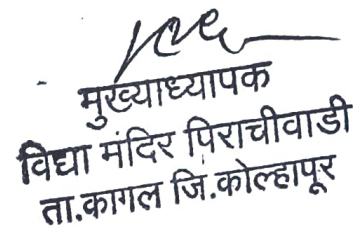 मुख्याध्यापक
विद्या मंदिर पिराचीवाडी
ता.कागल जि.कोल्हापूर